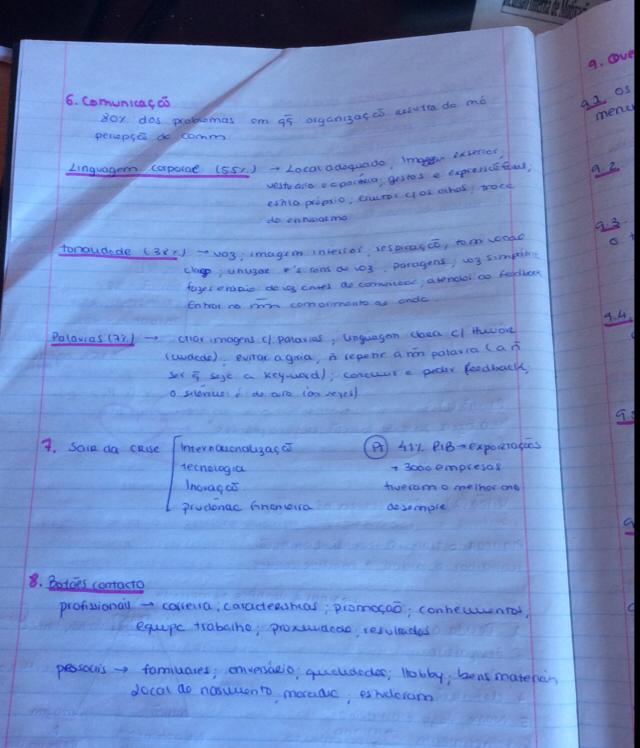 6. Comunicação
80% dos problemas em qq organização resulta da má
percepção da comm
Linguagem corporal (55%) → Local adequado, Imagem exterior,
vestuário e aparência, gestos e expressões;
estilo próprio, cruzar c/ os olhos, troca
de entusiasmo
tonalidade (38%) → voz, imagem interior, respiração, tom vocal
claro, utilizar tons de voz, paragens, voz
fazer ensaio da voz antes de comunicar, atender ao feedback
Entrar no mm comprimento de onda
Palavras (7%) → criar imagens c/ palavras, linguagem clara c/
evitar a gíria, ñ repetir a mm palavra (a ñ
ser q seja a key-word); concluir e pedir feedback,
o silêncio é de ouro (às vezes)
7. Sair da crise
Internacionalização
tecnologia
Inovação
prudência financeira
Pt 41% PIB → exportações
+ 3000 empresas
tiveram o melhor ano
de sempre
8. Botões contacto
profissionais → carreira; características; promoção; conhecimentos,
equipa trabalho; resultados
pessoais → familiares; aniversário; qualidades; Hobby; bens materiais
Local de nascimento, morada,
9. Que
9.1 os
menu
9.2
9.3
o
9.4
9.5